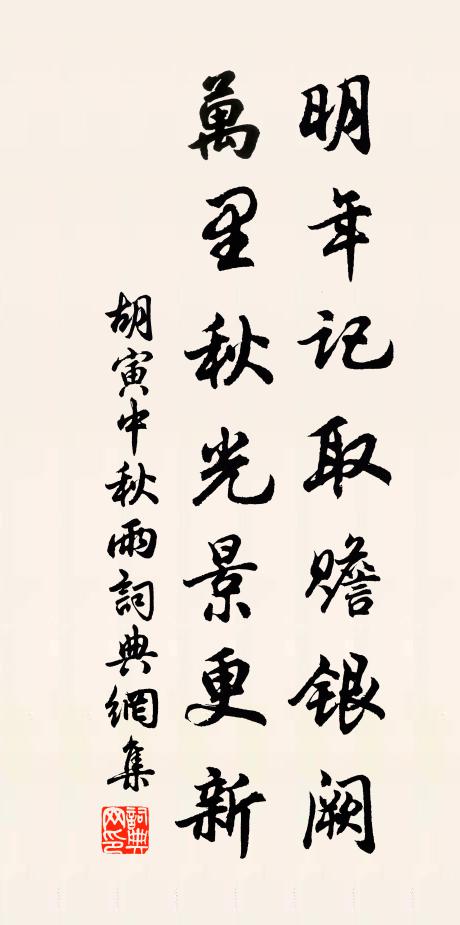 明年记取赡银阙
萬里秋光景更新
胡寅中秋雨詞典網集
詞典网印